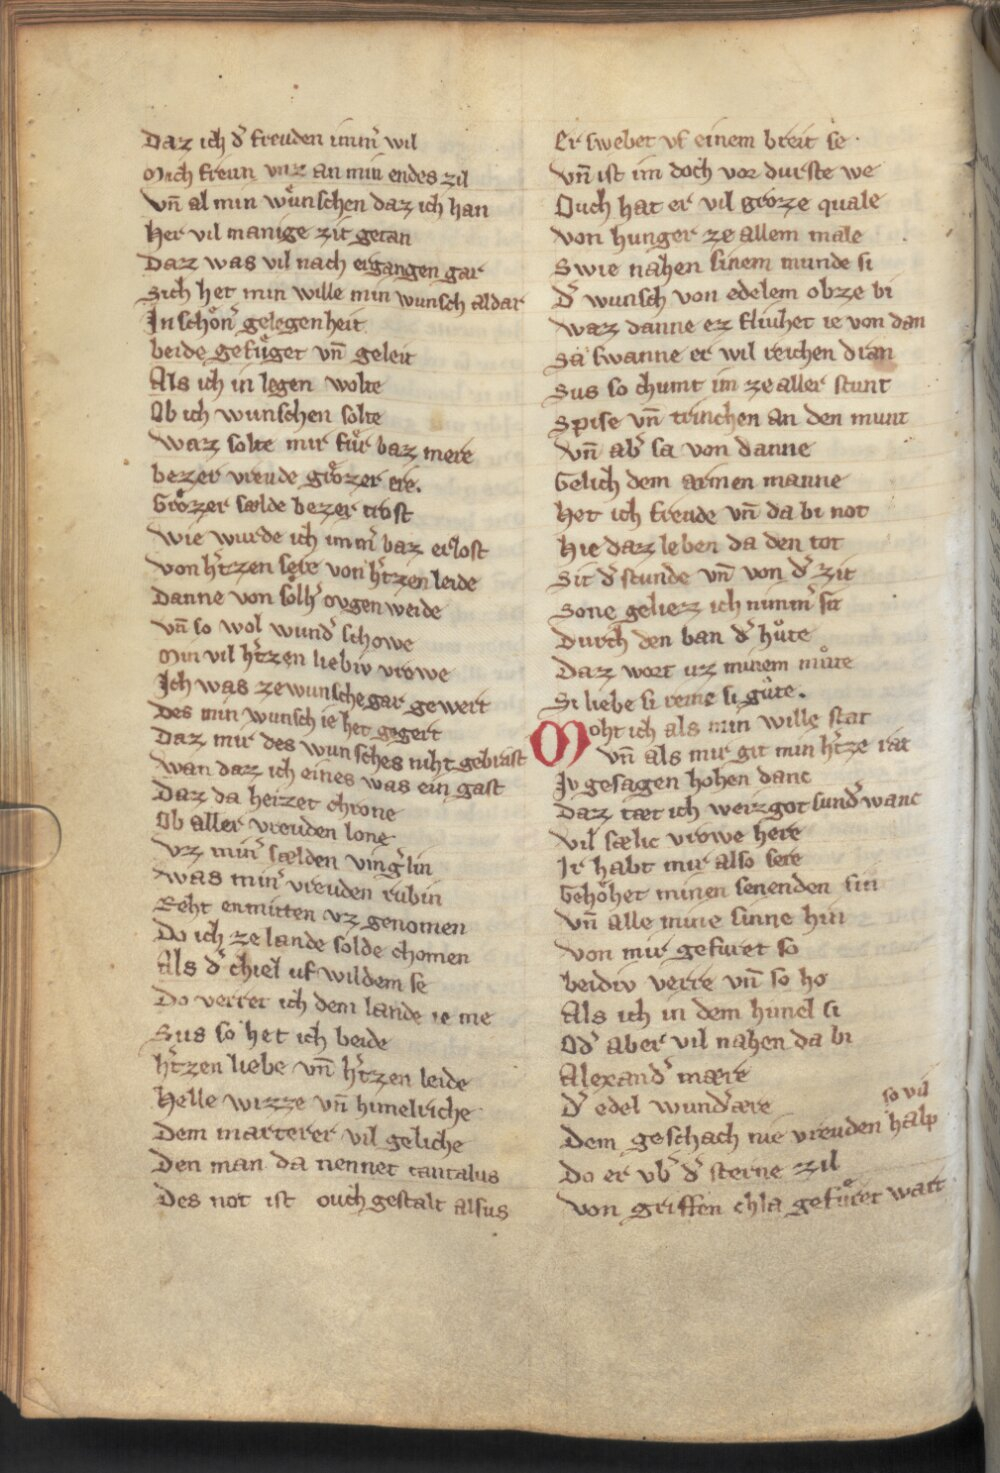 Daz ich d͛ freuden imm͛ wil
Mich freun vnz an min endes zil
Vn̄ al min wuͤnschen daz ich han
Her vil manige zit getan
Daz was vil nach ergangen gar
Sich het min wille min wunsch aldar
In schoͤn͛ gelegenheit
beide gefuͤget vn̄ geleit
Als ich in legen wolte
Ob ich wunschen solte
Waz solte mir fuͤr baz mere
bezer vreude groͤzer ere.
Groͤzer sælde bezer trost
Wie wurde ich imm͛ baz erlost
Von h͛tzen sere von h͛tzen leide
Danne von soͤlh͛ ovgen weide
Vn̄ so wol wund͛ schowe
Min vil h͛tzen liebiv vrowe
Ich was ze wunsche gar gewert
Des min wunsch ie het gegert
Daz mir des wunsches niht gebrast
Wan daz ich eines was ein gast
Daz da heizet chrone
Ob aller vreuden lone
Vz min͛ sælden ving͛lin
Was min͛ vreuden rubin
Reht enmitten vz genomen
Do ich ze lande solde chomen
Als d͛ chiel uf wildem se
Do verret ich dem lande ie me
Sus so het ich beide
h͛tzen liebe vn̄ h͛tzen leide
Helle wizze vn̄ himelriche
Dem marterer vil geliche
Den man da nennet tantalus
Des not ist ouch gestalt alsus
Er swebet vf einem breit se
Vn̄ ist im doch vor durste we
Ouch hat er vil groze quale
Von hunger ze allem male
Swie nahen sinem munde si
D͛ wunsch von edelem obze bi
Waz danne ez fliuhet ie von dan
Sa swanne er wil reichen dran
Sus so chumt im ze aller stunt
Spise vn̄ trinchen an den munt
Vn̄ ab͛ sa von danne
Gelich dem armen manne
Het ich freude vn̄ da bi not
Hie daz leben da den tot
Sit d͛ stunde vn̄ von d͛ zit
Sone geliez ich nimm͛ sit
Durch den ban d͛ huͦte
Daz wort uz minem muͦte
Si liebe si reine si guͦte.
Moht ich als min wille stat
Vn̄ als mir git min h͛tze rat
Iv gesagen hohen danc
Daz tæt ich weizgot sund͛ wanc
Vil sælic vrowe here
Ir habt mir also sere
Gehoͤhet minen senenden sin
Vn̄ alle mine sinne hin
Von mir gefuret so
beidiv verre vn̄ so ho
Als ich in dem himel si
Od͛ aber vil nahen da bi
Alexand͛ mære
D͛ edel wund͛ære
so vil
Dem geschach nie vreuden halp
Do er vb͛ d͛ sterne zil
Von griffen chla gefuͤret wart